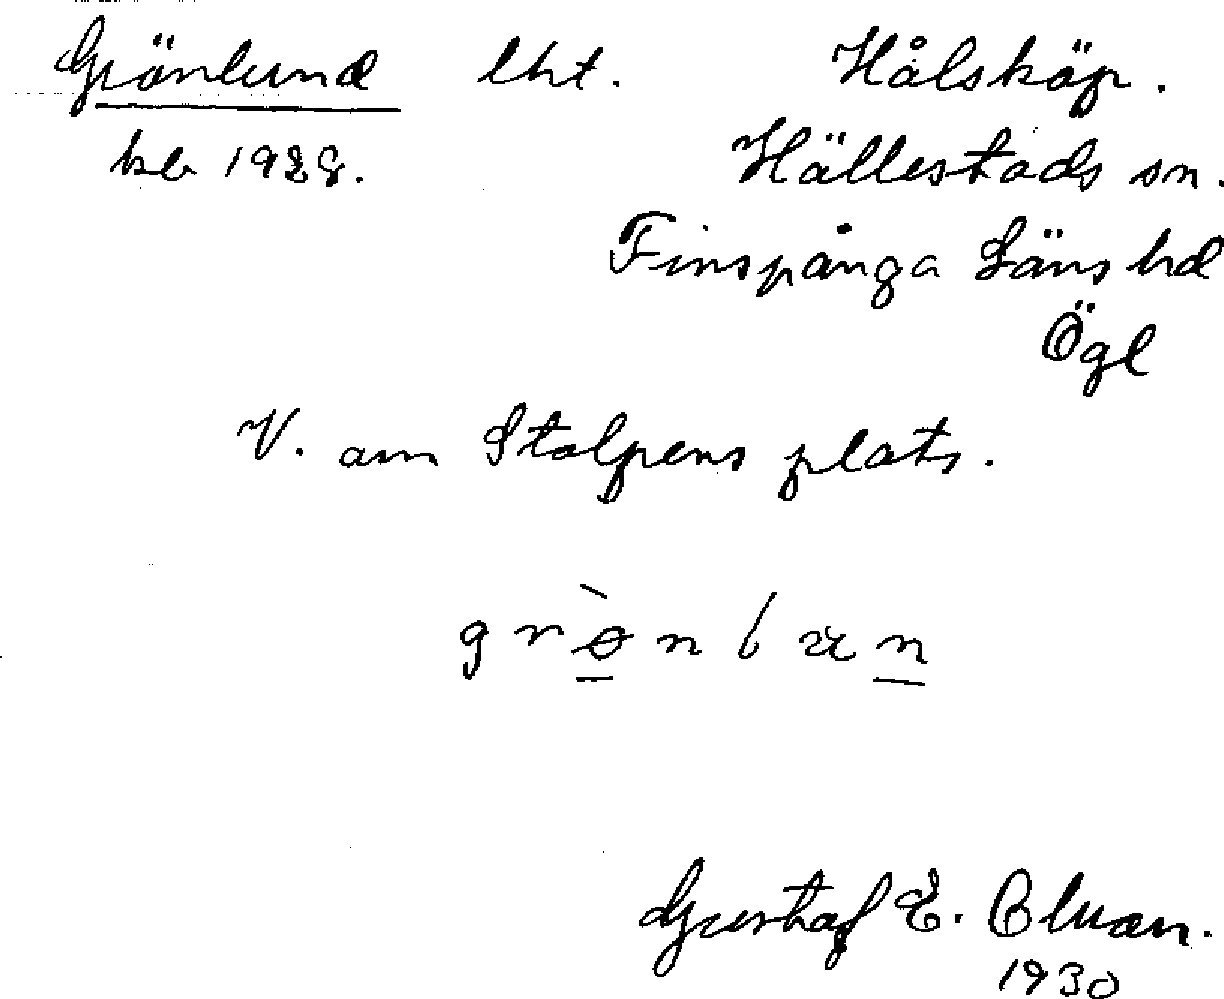 Grönlund lht. Hålsköp.
kb 1928. Hällestads sn.
Finspånga Läns hd
Ögl
V. om Stolpens plats.
Gustaf E.
1930